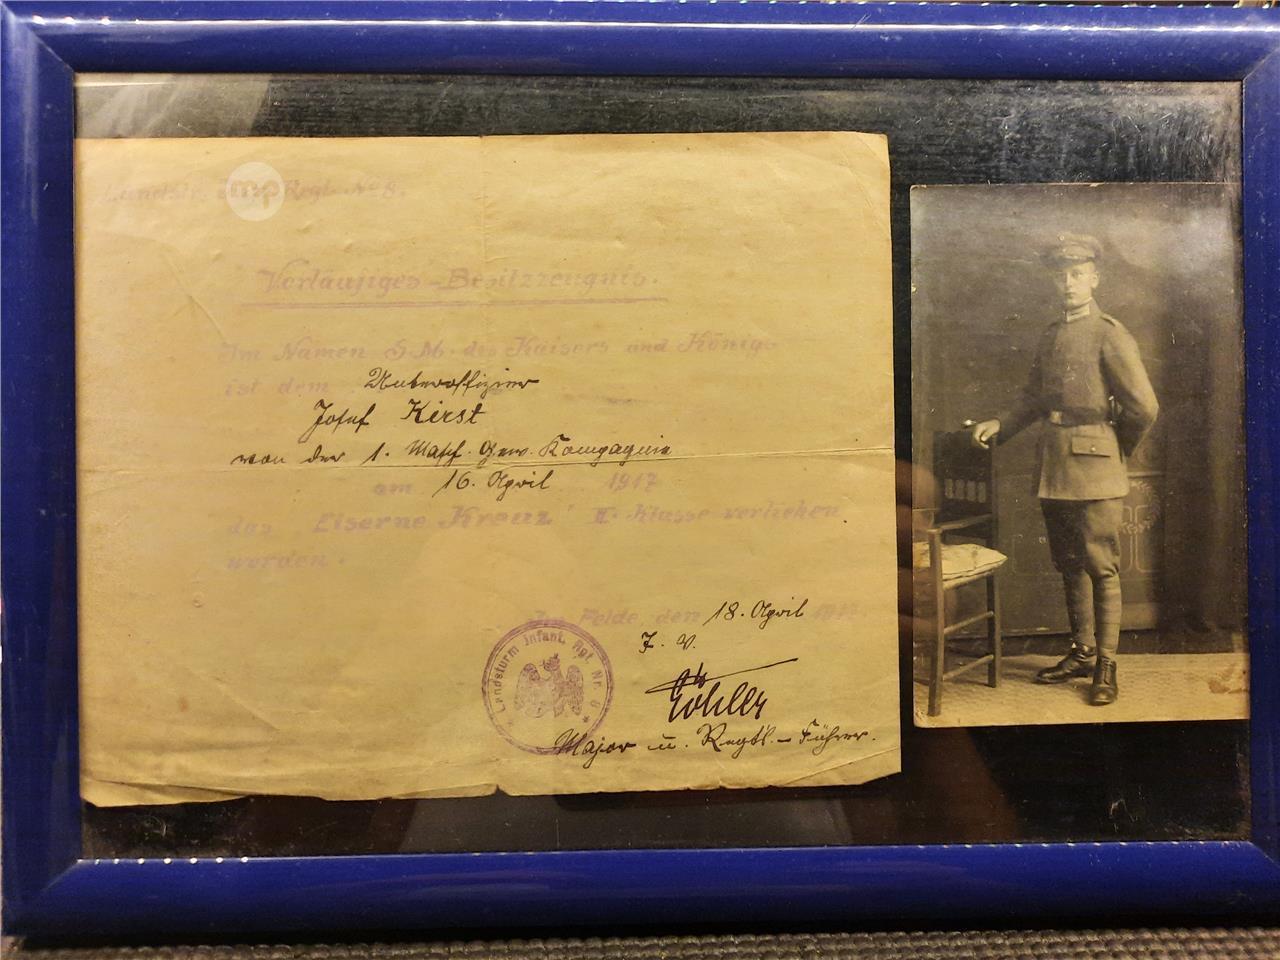 Landst. Inf. Regt. No 8.
Vorläufiges-Besitzzeugnis.
Im Namen S.M. des Kaisers und Königs
ist dem Unteroffizier
Josef Kirst
von der 1. Masch. Gew. Kompagnie
am 16. April 1917
das "Eiserne Kreuz" II. Klasse verliehen
worden.
Im Felde, den 18. April 1917.
I. V.
Major u. Regts.-Führer.
Landsturm Infant. Rgt. Nr. 8
mp